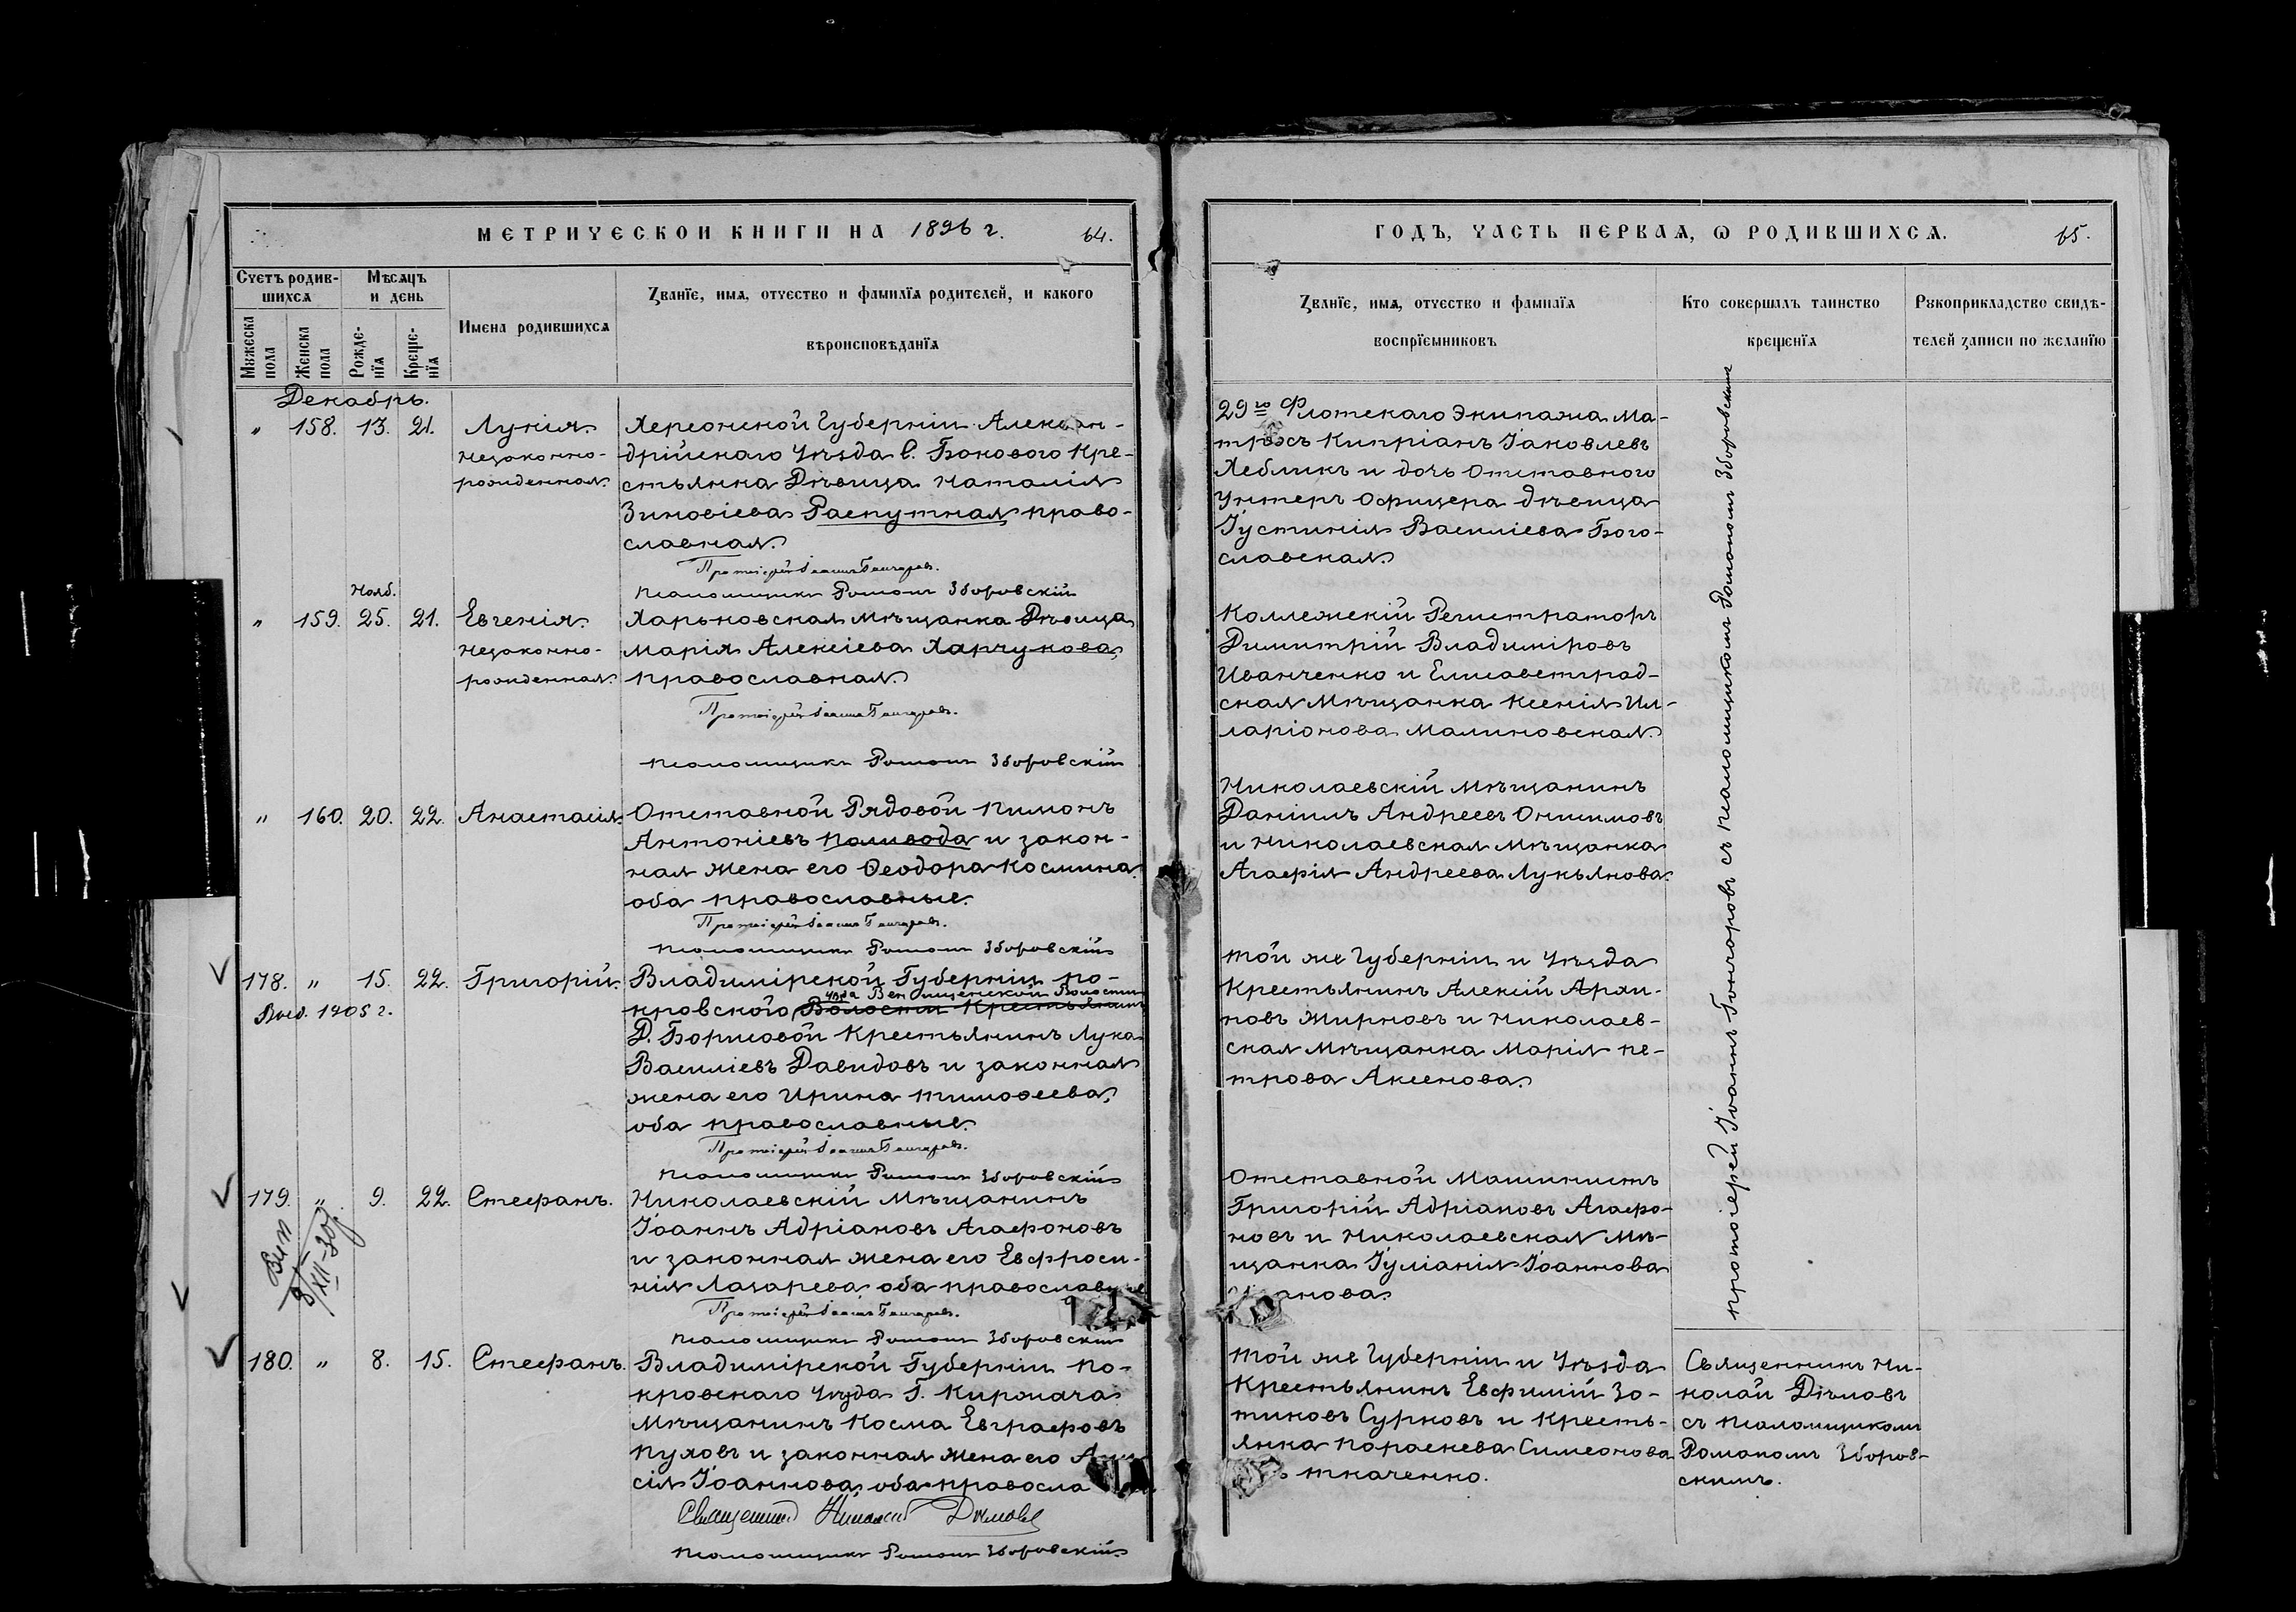 МЕТРИЧЕСКОЙ КНИГИ НА 1896 г. 64.
Счетъ родив-
шихся
Мѣсяцъ
и день
Мужеска
пола
Женска
пола
Рожде-
нїя
Креще-
нїя
Имена родившихся
Званїе, имя, отчество и фамилїя родителей, и какого
вѣроисповѣданїя
Декабрь.
" 158. 13. 21. Лукія
незаконно-
рожденная.
Херсонской Губерніи Алексан-
дрійскаго Уѣзда С. Бокового Кре-
стьянка Дѣвица Наталія
Зиновіева Распутная право-
славная.
Протоіерей Іоаннъ Гончаровъ.
Псаломщикъ Романъ Зборовскій
" 159. Нояб. 25. 21. Евгенія
незаконно-
рожденная.
Харьковская Мѣщанка Дѣвица
Марія Алексіева Харчукова,
православная.
Протоіерей Іоаннъ Гончаровъ.
Псаломщикъ Романъ Зборовскій
" 160. 20. 22. Анастасія.
Отставной Рядовой Пимонъ
Антоніевъ Поливода и закон-
ная жена его Ѳеодора Космина
оба православные.
Протоіерей Іоаннъ Гончаровъ.
Псаломщикъ Романъ Зборовскій
178. " 15. 22. Григорій.
1905 г.
Владимірской Губерніи По-
кровского Волости Крестьянинъ
Д. Борисовой Крестьянинъ Лука
Василіевъ Давидовъ и законная
жена его Ирина Тимоѳеева,
оба православные.
Протоіерей Іоаннъ Гончаровъ.
Псаломщикъ Романъ Зборовскій
179. " 9. 22. Стефанъ.
Николаевскій Мѣщанинъ
Іоаннъ Адріановъ Агафоновъ
и законная жена его Евфроси-
нія Лазарева оба православные
Протоіерей Іоаннъ Гончаровъ.
Псаломщикъ Романъ Зборовскій
180. " 8. 15. Стефанъ.
Владимірской Губерніи По-
кровскаго Уѣзда Г. Киржача
Мѣщанинъ Косма Евграфовъ
Пуховъ и законная жена его
сія Іоаннова, оба правосла
Священникъ Николай Дѣмовъ
Псаломщикъ Романъ Зборовскій
ГОДЪ, ЧАСТЬ ПЕРВАЯ, Ѡ РОДИВШИХСЯ. 65.
Званїе, имя, отчество и фамилїя
воспрїемниковъ
Кто совершалъ таинство
крещенїя
Рукоприкладство свидѣ-
телей записи по желанїю
29го Флотскаго Экипажа Ма-
тросъ Кипріанъ Іаковлевъ
Хебликъ и дочь отставного
Унтеръ Офицера дѣвица
Іустинія Василіева Бого-
славская.
Коллежскій Регистраторъ
Димитрій Владиміровъ
Иванченко и Елисаветград-
ская Мѣщанка Ксенія Ил-
ларіонова Малиновская.
Николаевскій Мѣщанинъ
Даніилъ Андреевъ Онисимовъ
и Николаевская Мѣщанка
Агафія Андреева Лукьянова.
Той же Губерніи и Уѣзда
Крестьянинъ Алексій Архи-
повъ Жирновъ и Николаев-
ская Мѣщанка Марія Пе-
трова Аксенова.
Отставной Машинистъ
Григорій Адріановъ Агафо-
новъ и Николаевская Мѣ-
щанка Іуліанія Іоаннова
анова.
Той же Губерніи и Уѣзда
Крестьянинъ Евфимій Зо-
тиковъ Сурковъ и Кресть-
янка Параскева Симеонова
Ткаченко.
Протоіерей Іоаннъ Гончаровъ съ псаломщикомъ Романомъ Зборовскимъ
Священникъ Ни-
колай Дѣмовъ
съ псаломщикомъ
Романомъ Зборов-
скимъ.